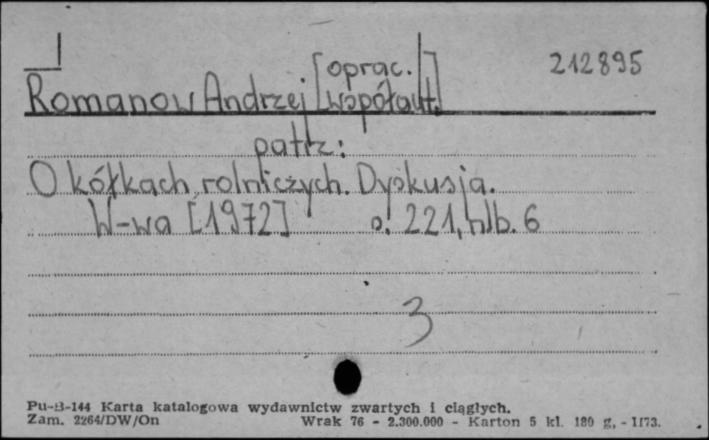 [oprac. 212895
Romanow Andrzej współaut.]
patrz:
O kółkach rolniczych. Dyskusja.
W-wa [1972] s. 221, nlb. 6
3
Pu-B-144 Karta katalogowa wydawnictw zwartych i ciągłych.
Zam. 2264/DW/On Wrak 76 - 2.300.000 - Karton 5 kl. 180 g, - 1173.